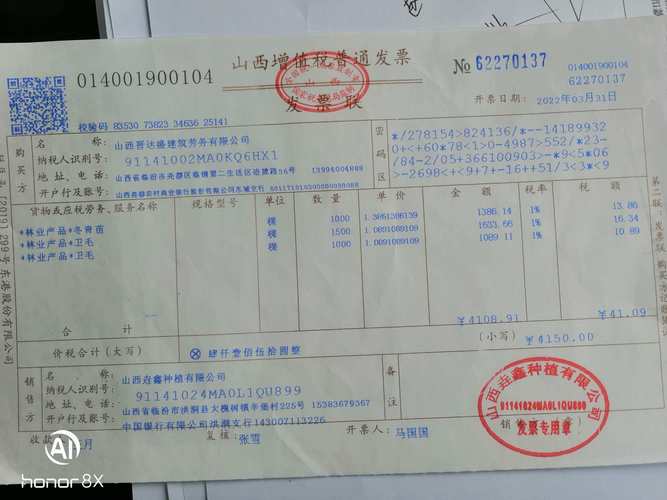 山西增值税普通发票
发票联
014001900104
№ 62270137
014001900104
62270137
校验码 83530 73823 34636 25141
开票日期: 2022年03月31日
购买方
名称: 山西晋达盛建筑劳务有限公司
纳税人识别号: 91141002MA0KQ6HX1
地址、电话: 13994004888
开户行及账号:
密码区
*/278154>824136/**-14189932
0+<+60*78<1>0-4987>552/*23-
/84-2/05+366100903>-*9<5*06
>-2698<+<9+7-16++51/3<3*<9
货物或应税劳务、服务名称 规格型号 单位 数量 单价 金额 税率 税额
*林业产品*冬青苗 棵 1000 1.3861386139 1386.14 1% 13.86
*林业产品*卫毛 棵 1500 1.0891089109 1633.66 1% 16.34
*林业产品*卫毛 棵 1000 1.0891089109 1089.11 1% 10.89
合计 ¥4108.91 ¥41.09
价税合计(大写) ⊗ 肆仟壹佰伍拾圆整 (小写) ¥4150.00
销售方
名称: 山西垚鑫种植有限公司
纳税人识别号: 91141024MA0L1QU899
地址、电话: 山西省临汾市洪洞县大槐树镇羊堡村225号 15383679367
开户行及账号: 中国银行有限公司洪洞支行143007113226
备注
山西垚鑫种植有限公司
91141024MA0L1QU899
发票专用章
收款 月 复核: 张雪 开票人: 马国国
[2019] 299号 东港股份有限公司
第二联: 发票联
AI
honor 8X